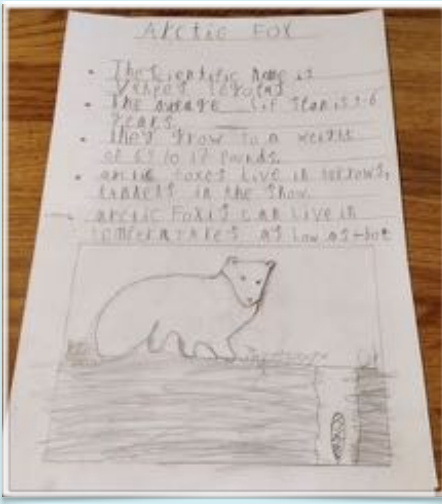 Arctic Fox
• The scientific name is
Vulpes lagopus
• The avarage life span is 3-6
years
• they grow to a weight
of 6.5 to 17 pounds.
• arctic foxes live in burrows,
tunnels in the snow.
arctic Foxis can live in
as low as